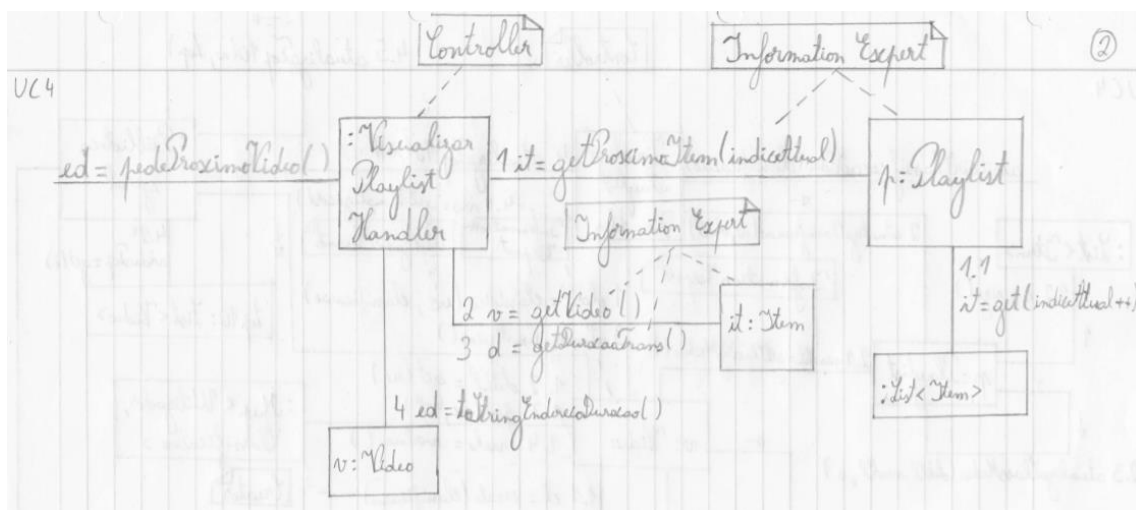 Controller
Information Expert
2
UC4
ed = pedeProximoVideo()
:Visualizar
Playlist
Handler
1 it = getProximoItem(indiceAtual)
p: Playlist
Information Expert
1.1
it = get(indiceAtual++)
2 v = getVideo()
3 d = getDuracaoTrans()
it: Item
:List<Item>
4 ed = toStringEnderecoDuracao()
v: Video